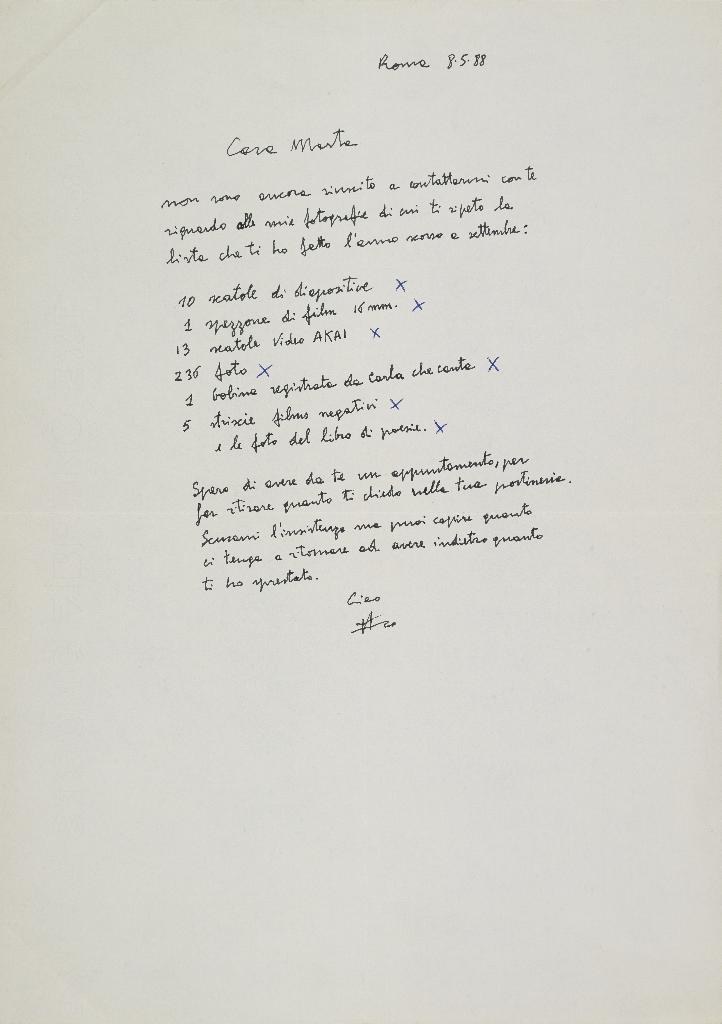 Roma 8.5.88
Cara Marta
non sono ancora riuscito a contattarmi con te
riguardo alle mie fotografie di cui ti ripeto la
lista che ti ho fatto l'anno scorso a settembre:
10 scatole di diapositive X
1 spezzone di film 16 mm. X
13 scatole video AKAI X
236 foto X
1 bobina registrata da Carla che canta X
5 striscie films negativi X
e le foto del libro di poesie. X
Spero di avere da te un appuntamento, per
far ritirare quanto ti chiedo nella tua portineria.
Scusami l'insistenza ma puoi capire quanto
ci tenga a ritornare ad avere indietro quanto
ti ho prestato.
Ciao